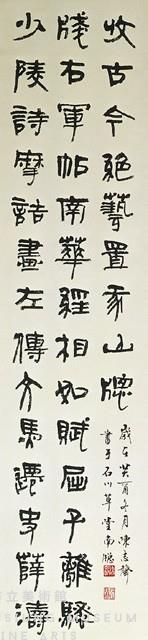 少陵詩摩詰畫左傳文馬遷史薛濤
牋右軍帖南華經相如賦屈子離騷
收古今絕藝置我山牕
歲在癸酉冬月陳志
書于石川草堂南牕
市立美術館
INE ARTS